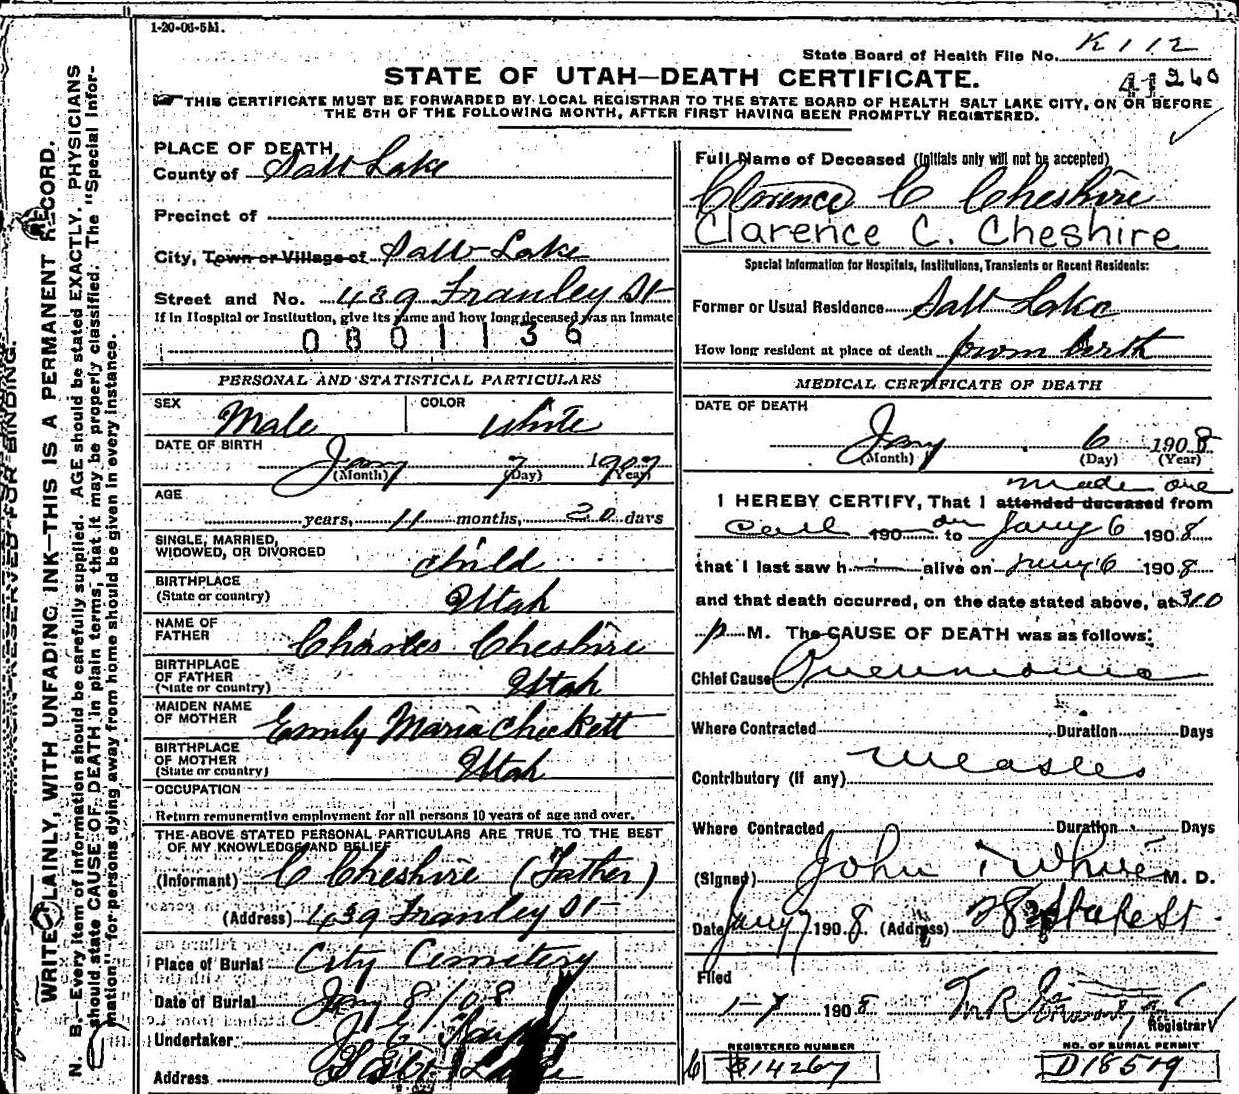 1-20-06-5M.
State Board of Health File No. K 112
STATE OF UTAH—DEATH CERTIFICATE.
41 260
THIS CERTIFICATE MUST BE FORWARDED BY LOCAL REGISTRAR TO THE STATE BOARD OF HEALTH SALT LAKE CITY, ON OR BEFORE
THE 5TH OF THE FOLLOWING MONTH, AFTER FIRST HAVING BEEN PROMPTLY REGISTERED.
PLACE OF DEATH
County of Salt Lake
Precinct of
City, Town or Village of Salt Lake
Street and No. 439 Franley St
If in Hospital or Institution, give its name and how long deceased was an inmate
0801136
PERSONAL AND STATISTICAL PARTICULARS
SEX Male COLOR white
DATE OF BIRTH
Jany 7 1907
(Month) (Day) (Year)
AGE
years, 11 months, 30 days
SINGLE, MARRIED,
WIDOWED, OR DIVORCED child
BIRTHPLACE
(State or country) Utah
NAME OF
FATHER Charles Cheshire
BIRTHPLACE
OF FATHER
(State or country) Utah
MAIDEN NAME
OF MOTHER Emily Maria Checkett
BIRTHPLACE
OF MOTHER
(State or country) Utah
OCCUPATION
Return remunerative employment for all persons 10 years of age and over.
THE ABOVE STATED PERSONAL PARTICULARS ARE TRUE TO THE BEST
OF MY KNOWLEDGE AND BELIEF
(Informant) C Cheshire (Father)
(Address) 439 Franley St
Place of Burial City Cemetery
Date of Burial Jany 8/08
Undertaker J E
Address Salt Lake
Full Name of Deceased (Initials only will not be accepted)
Clarence C Cheshire
Clarence C. Cheshire
Special Information for Hospitals, Institutions, Transients or Recent Residents:
Former or Usual Residence Salt Lake
How long resident at place of death from birth
MEDICAL CERTIFICATE OF DEATH
DATE OF DEATH
Jany 6 1908
(Month) (Day) (Year)
made one
I HEREBY CERTIFY, That I attended deceased from
call 190 on to Jany 6 1908
that I last saw h alive on Jany 6 1908
and that death occurred, on the date stated above, at 310
p M. The CAUSE OF DEATH was as follows:
Chief Cause Pneumonia
Where Contracted Duration Days
Contributory (if any) Measles
Where Contracted Duration Days
(Signed) John White M. D.
Date Jany 7 1908 (Address) State St
Filed
1-7 1908
Registrar
REGISTERED NUMBER
C 814267
NO. OF BURIAL PERMIT
D18519
MARGIN RESERVED FOR BINDING.
WRITE PLAINLY, WITH UNFADING INK—THIS IS A PERMANENT RECORD.
N. B.—Every item of information should be carefully supplied. AGE should be stated EXACTLY. PHYSICIANS
should state CAUSE OF DEATH in plain terms, that it may be properly classified. The "Special Infor-
mation" for persons dying away from home should be given in every instance.